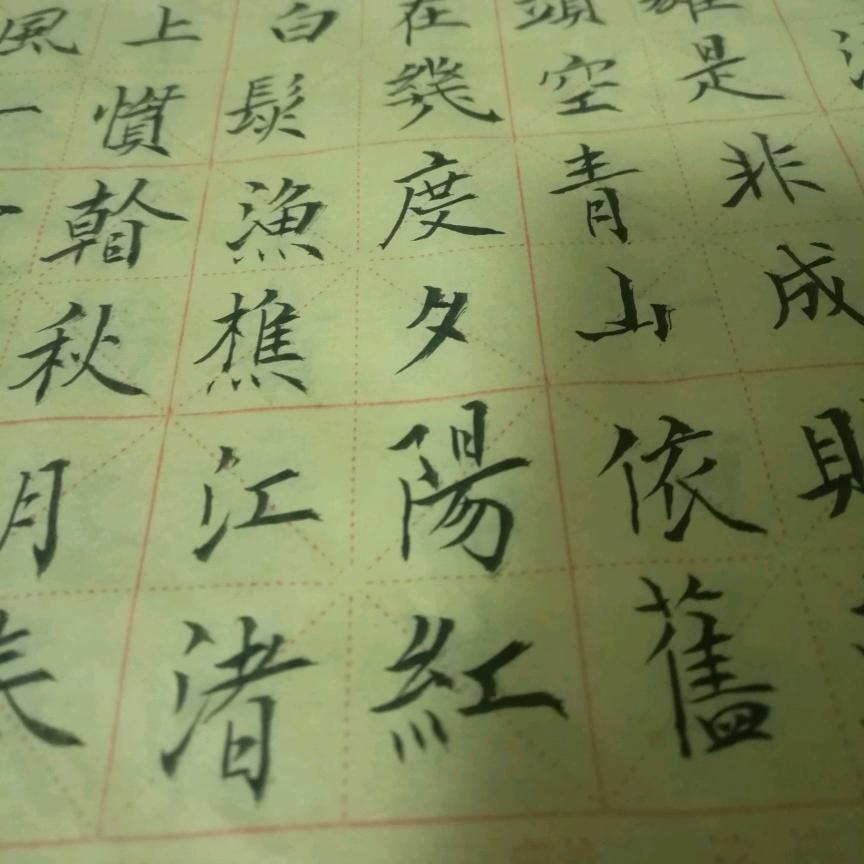 雄是非成
頭空青山依舊
在幾度夕陽紅
白髮漁樵江渚
上慣看秋月
風一